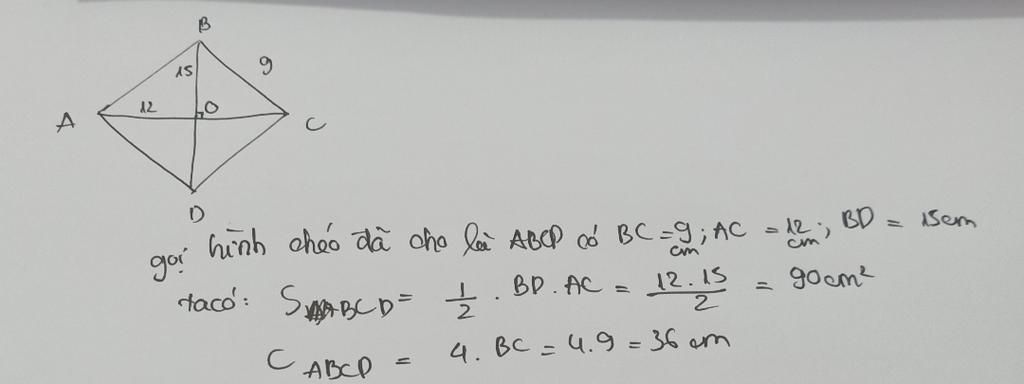 B
15
9
12
O
A
C
D
gọi hình chéo đã cho là ABCD có BC = 9 cm; AC = 12 cm; BD = 15cm
ta có: S ABCD = 1/2 . BD . AC = 12.15/2 = 90cm²
C ABCD = 4. BC = 4.9 = 36 cm